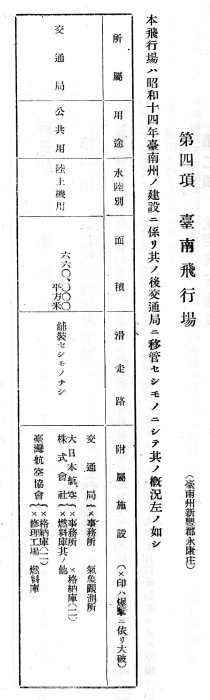 第四項 臺南飛行場
(臺南州新豐郡永康庄)
本飛行場ハ昭和十四年臺南州ノ建設ニ係リ其ノ後交通局ニ移管セシモノニシテ其ノ概況左ノ如シ
所屬 用途 水陸別 面積 滑走路 附屬施設(×印ハ爆擊ニ依リ大破)
交通局 公共用 陸上機用 六六〇、〇〇〇平方米 舖裝セシモノナシ
交通局(×事務所 氣象觀測所
大日本航空株式會社(×事務所 ×格納庫(二)
×燃料庫其ノ他
臺灣航空協會(×格納庫(二)
×修理工場 燃料庫